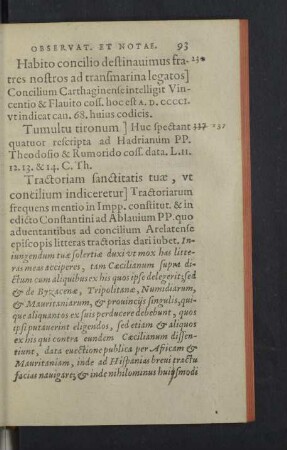 OBSERVAT. ET NOTAE. 93
Habito concilio destinauimus fra-
tres nostros ad transmarina legatos]
Concilium Carthaginense intelligit Vin-
centio & Flauito coss. hoc est A. D. CCCCI.
vt indicat can. 68. huius codicis.
Tumultu tironum ] Huc spectant
quatuor rescripta ad Hadrianum PP.
Theodosio & Rumorido coss. data. L. 11.
12. 13. & 14. C. Th.
Tractoriam sanctitatis tuae, vt
concilium indiceretur] Tractoriarum
frequens mentio in Impp. constitut. & in
edicto Constantini ad Ablauium PP. quo
aduentantibus ad concilium Arelatense
episcopis litteras tractorias dari iubet. In-
iungendum tuae solertiae duxi vt mox has litte-
ras meas acciperes, tam Caecilianum supra di-
ctum cum aliquibus ex his quos ipse delegerit; sed
& de Byzacenae, Tripolitanae, Numidiarum,
& Mauritaniarum, & prouincijs singulis, qui-
que aliquantos ex suis perducere debebunt, quos
ipsi putauerint eligendos, sed etiam & aliquos
ex his qui contra eundem Caecilianum dissen-
tiunt, data euectione publica per Africam &
Mauritaniam, inde ad Hispanias breui tractu
facias nauigare, & inde nihilominus huiusmodi